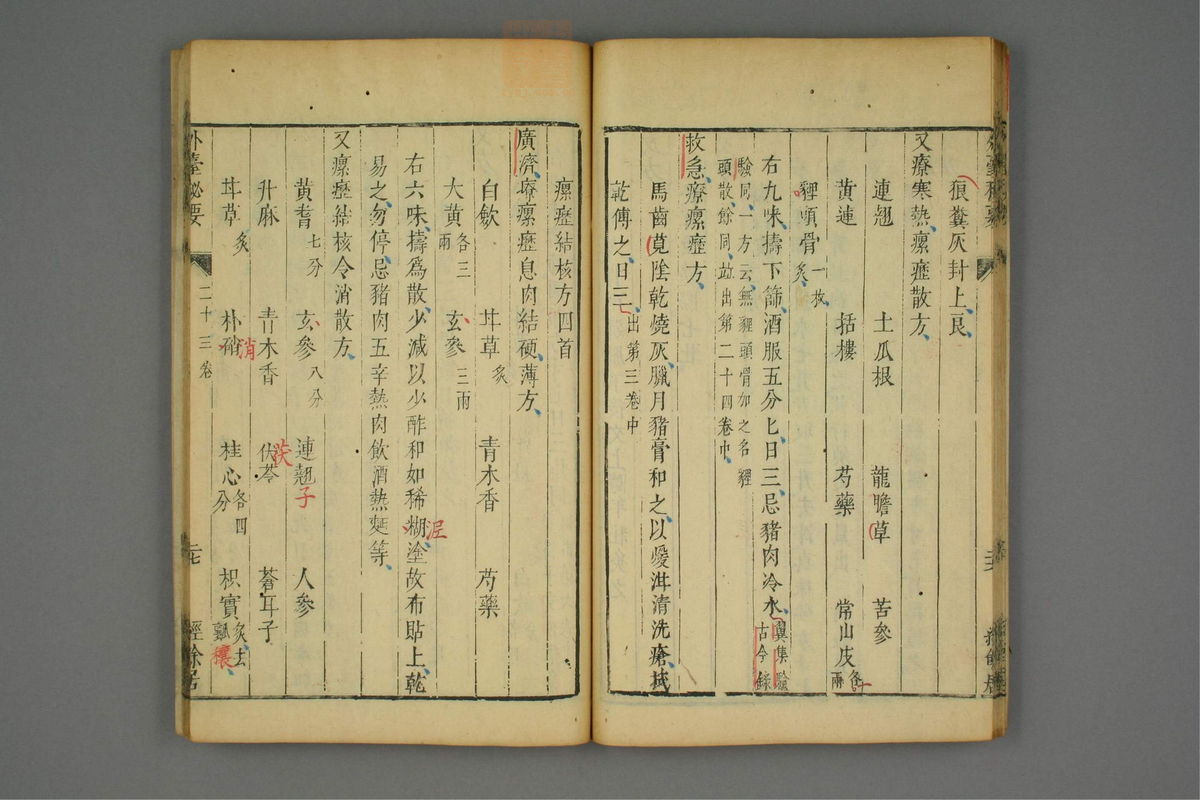 狼糞灰封上良
又療寒熱瘰癧散方
連翹 土瓜根 龍膽草 苦參
黄連 括樓 芍藥 常山皮各一兩
貍頭骨炙一枚
右九味擣下篩酒服五分匕日三忌豬肉冷水翼集驗古今錄
驗同一方云無貍頭骨加之名貍
頭散餘同並出第二十四卷中
救急療瘰癧方
馬齒莧陰乾燒灰臘月豬膏和之以煖泔清洗瘡拭
乾傅之日三出第三卷中
瘰癧結核方四首
廣濟療瘰癧息肉結硬薄方
白歛 甘草炙 青木香 芍藥
大黄各三兩 玄參三兩
右六味擣爲散少減以少酢和如稀糊塗故布貼上乾
泥
易之勿停忌豬肉五辛熱肉飲酒熱麵等
又瘰癧結核令消散方
黄耆七分 玄參八分 連翹子 人參
升麻 青木香 伏苓 蒼耳子
茯
甘草炙 朴硝 桂心各四分 枳實炙去瓤
消
穰
外臺秘要 二十三卷 二七 經餘居